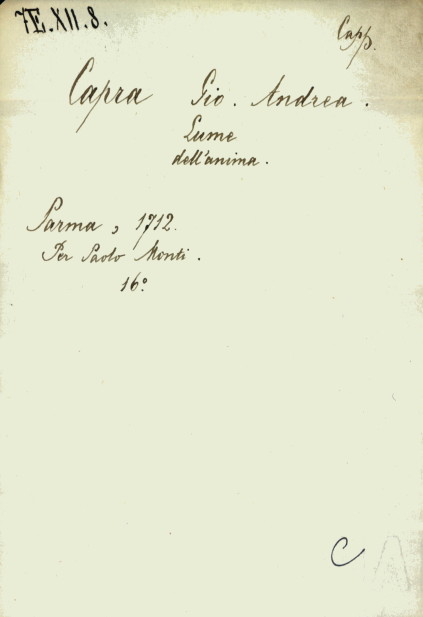 7E.XII.8.
Capp.
Capra Gio. Andrea.
Lume
dell'anima.
Parma, 1712.
Per Paolo Monti.
16º
C